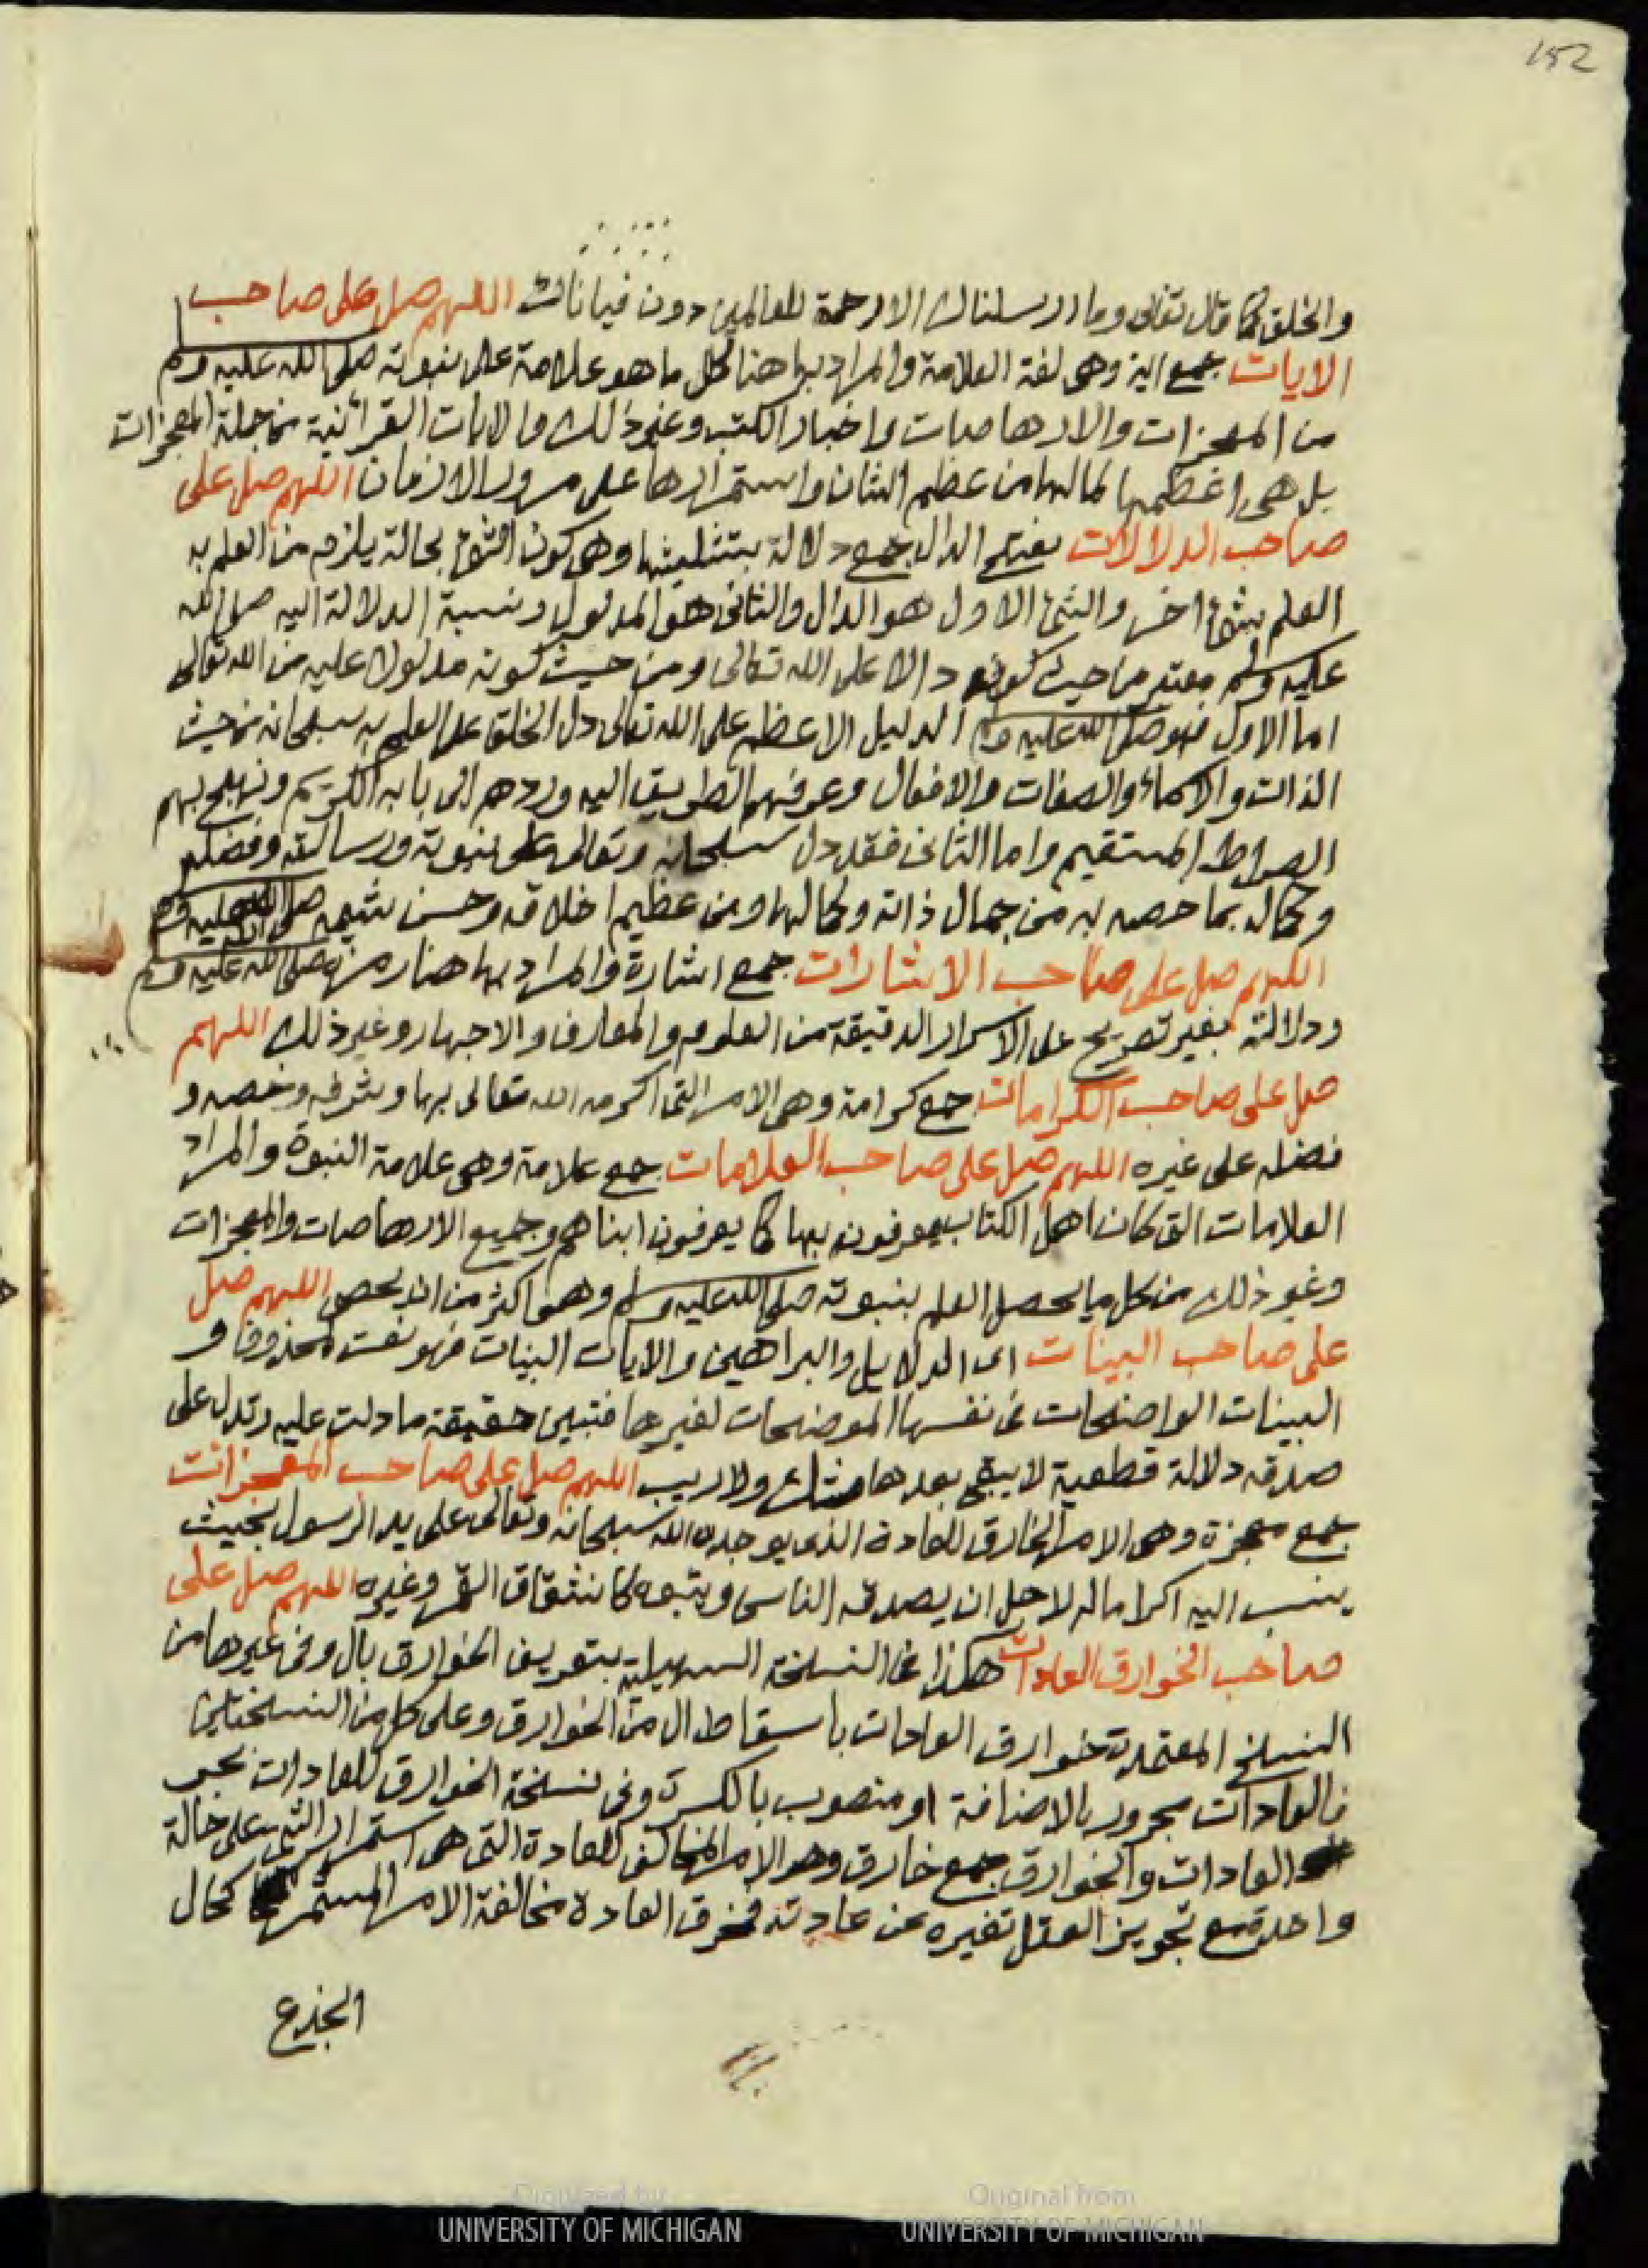 152
والخلق كما قال تعالى وما ارسلناك الا رحمة للعالمين دون اللهم صل على صاحب
الايات جمع اية وهى لغة العلامة والمراد بها هنا كل ما هو علامة على نبوته صلى الله عليه وم
من المعجزات والارهاصات واخبار الكتب وغير ذلك والايات القرآنية من جملة المعجزات
بل هى اعظمها لما لها من عظم الشان واستمرارها على مرور الازمان اللهم صل على
صاحب الدلالات بفتح الدال جمع دلالة بتثليثها وهى كون الشئ بحالة يلزم من العلم به
العلم بشئ اخر والشئ الاول هو الدال والثانى هو المدلول ونسبة الدلالة اليه صلى الله
عليه وسلم معتبر من حيث كونه دالا على الله تعالى ومن حيث كونه مدلولا عليه من الله تعالى
اما الاول فهو صلى الله عليه وم الدليل الاعظم على الله تعالى دل الخلق على العلم به سبحانه من حيث
الذات والاسماء والصفات والافعال وعرفهم الطريق اليه وردهم الى بابه الكريم ونهج بهم
الصراط المستقيم واما الثانى فقد دل سبحانه وتعالى على نبوته ورسالته وفضله
وكماله بما خصه به من جمال ذاته وكمالها ومن عظيم اخلاقه وحسن شيمه صلى الله عليه وم
اللهم صل على صاحب الاشارات جمع اشارة والمراد بها هنا رمزه صلى الله عليه وم
ودلالته بغير تصريح على الاسرار الدقيقة من العلوم والمعارف والاخبار وغير ذلك اللهم
صل على صاحب الكرامات جمع كرامة وهى الامر التى اكرمه الله تعالى بها وشرفه وخصه و
فضله على غيره اللهم صل على صاحب العلامات جمع علامة وهى علامة النبوة والمراد
العلامات التى كان اهل الكتاب يعرفونه بها كما يعرفون ابناهم وجميع الارهاصات والمعجزات
وغير ذلك من كل ما يحصل العلم بنبوته صلى الله عليه وسلم وهو اكثر من ان يحصى اللهم صل
على صاحب البينات اى الدلايل والبراهين والايات البينات فهو نعت لمحذوف و
البينات الواضحات فى نفسها الموضحات لغيرها فتبين حقيقة ما دلت عليه وتدل على
صدقه دلالة قطعية لا يبقى بعدها شك ولا ريب اللهم صل على صاحب المعجزات
جمع معجزة وهى الامر الخارق للعادة الذى يوجده الله سبحانه وتعالى على يد الرسول بحيث
ينسب اليه اكراما له لاجل ان يصدقه الناس ويتبعوه كانشقاق القمر وغيره اللهم صل على
صاحب الخوارق العادات هكذا فى النسخة السهيلية بتعريف الخوارق بال وفى غيرها من
النسخ المعتمدة خوارق العادات باسقاط ال من الخوارق وعلى كل من النسختين
فالعادات مجرور بالاضافة او منصوب بالكسرة وفى نسخة الخوارق للعادات بجر
العادات والخوارق جمع خارق وهو الامر المخالف للعادة التى هى استمرار الشئ على حالة
واحدة مع تجويز العقل تغيره عن عادته فخرق العادة مخالفة الامر المستمر كحال
الجذع
Digitized by
UNIVERSITY OF MICHIGAN
Original from
UNIVERSITY OF MICHIGAN